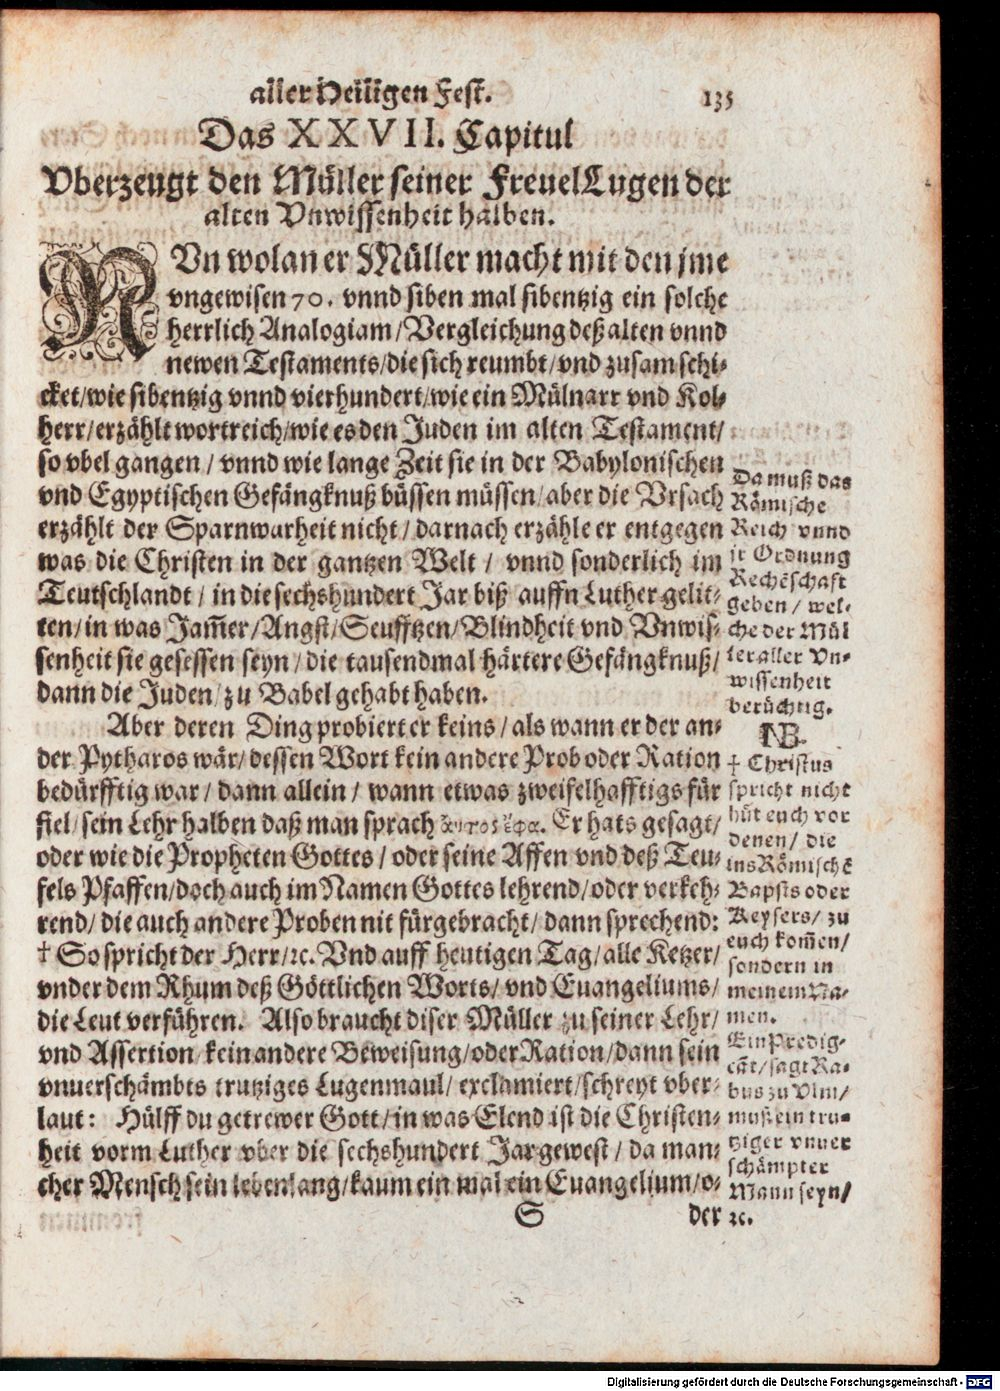 aller Heiligen Fest. 135
Das XXVII. Capitul
Vberzeugt den Müller seiner FreuelLugen der
alten Vnwissenheit halben.
NVn wolan er Müller macht mit den jme
vngewisen 70. vnnd siben mal sibentzig ein solche
herrlich Analogiam/Vergleichung deß alten vnnd
newen Testaments/die sich reumbt/vnd zusam schi-
cket/wie sibentzig vnnd vierhundert/wie ein Mülnarr vnd Kol-
herr/erzählt wortreich/wie es den Juden im alten Testament/
so vbel gangen/ vnnd wie lange Zeit sie in der Babylonischen
vnd Egyptischen Gefängknuß büssen müssen/aber die Vrsach
erzählt der Sparnwarheit nicht/ darnach erzähle er entgegen
was die Christen in der gantzen Welt/ vnnd sonderlich im
Teutschlandt/ in die sechshundert Jar biß auffn Luther gelit-
ten/in was Jam̃er/Angst/Seufftzen/Blindheit vnd Vnwis-
senheit sie gesessen seyn/die tausendmal härtere Gefängknuß/
dann die Juden/zu Babel gehabt haben.
Aber deren Ding probiert er keins/als wann er der an-
der Pytharos wär/dessen Wort kein andere Prob oder Ration
bedürfftig war/ dann allein/ wann etwas zweifelhafftigs für
fiel/sein Lehr halben daß man sprach ἀυτος ἔφα. Er hats gesagt/
oder wie die Propheten Gottes/oder seine Affen vnd deß Teu-
fels Pfaffen/doch auch im Namen Gottes lehrend/oder verkeh-
rend/die auch andere Proben nit fürgebracht/dann sprechend:
† So spricht der Herr/ꝛc. Vnd auff heutigen Tag/alle Ketzer/
vnder dem Rhum deß Göttlichen Worts/ vnd Euangeliums/
die Leut verführen. Also braucht diser Müller zu seiner Lehr/
vnd Assertion/kein andere Beweisung/oder Ration/dann sein
vnuerschämbts trutziges Lugenmaul/ exclamiert/schreyt vber-
laut: Hülff du getrewer Gott/in was Elend ist die Christen-
heit vorm Luther vber die sechshundert Jar gewest/ da man-
cher Mensch sein lebenlang/kaum ein mal ein Euangelium/o-
S der
Da muß das
Römische
Reich vnnd
jr Ordnung
Rechẽschaft
geben/ wel-
che der Mül
ler aller Vn-
wissenheit
berüchtig.
NB.
† Christus
spricht nicht
hüt euch vor
denen/ die
ins Römischẽ
Bapsts oder
Keysers/ zu
euch kom̃en/
sondern in
meinem Na-
men.
Ein Predig-
cãt/sagt Ra-
bus zu Vlm/
muß ein tru-
tziger vnuer
schämpter
Mann seyn/
ꝛc.
Digitalisierung gefördert durch die Deutsche Forschungsgemeinschaft - DFG